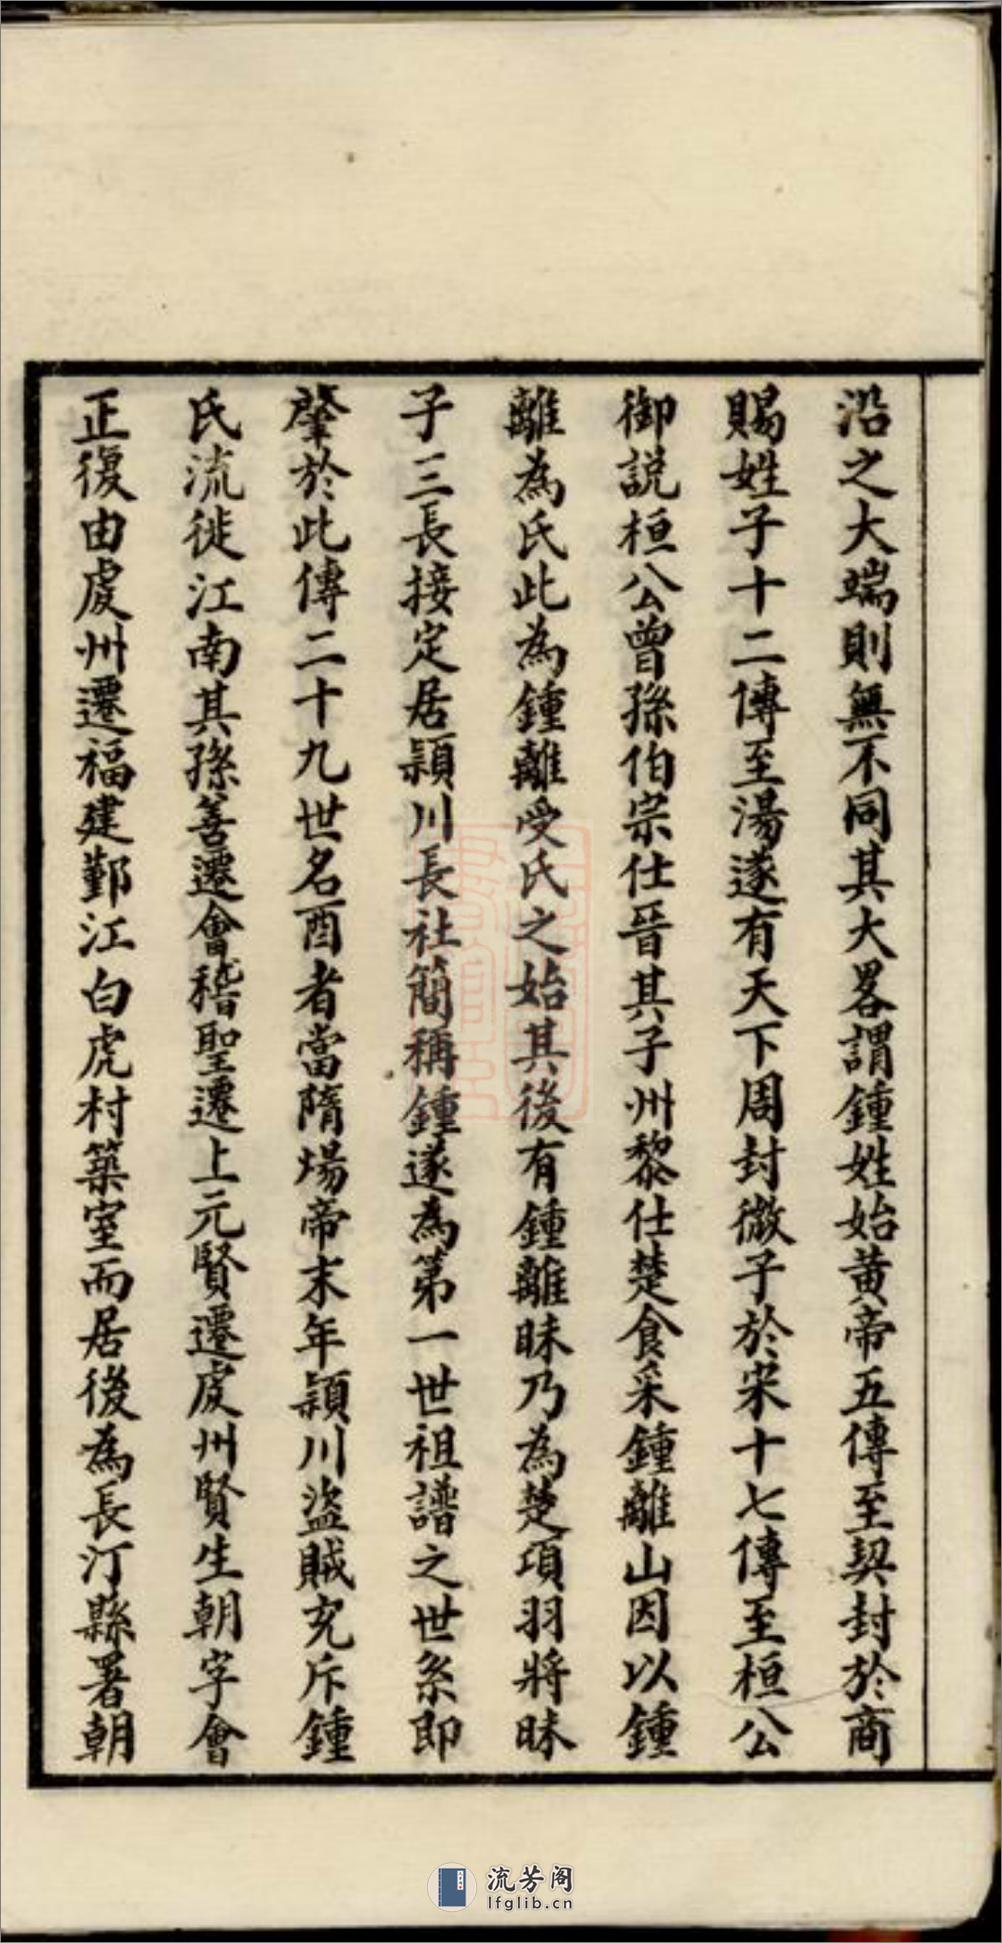 沿之大端則無不同其大畧謂鍾姓始黄帝五傳至契封於商
賜姓子十二傳至湯遂有天下周封微子於宋十七傳至桓公
御説桓公曾孫伯宗仕晉其子州黎仕楚食采鍾離山因以鍾
離為氏此為鍾離受氏之始其後有鍾離昧乃為楚項羽將昧
子三長接定居潁川長社簡稱鍾遂為第一世祖譜之世系即
肇於此傳二十九世名酉者當隋煬帝末年潁川盜賊充斥鍾
氏流徙江南其孫善遷會稽聖遷上元賢遷虔州賢生朝字會
正復由虔州遷福建鄞江白虎村築室而居後為長汀縣署朝
流芳阁
lfglib.cn